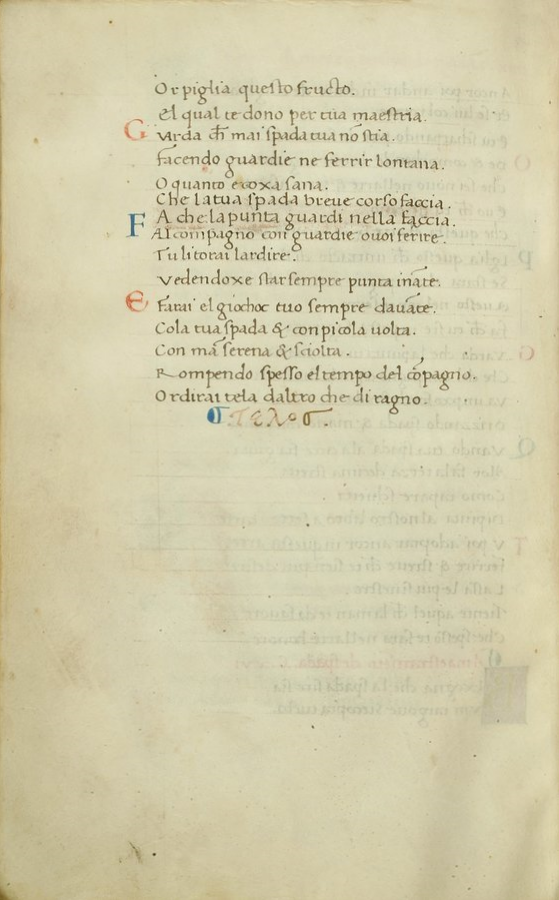 Or piglia questo fructo.
El qual te dono per tua maestria.
Guarda ch̄ mai spada tua nō stia.
facendo guardie ne ferrir lontana.
O quanto e coxa sana.
Che la tua spada breue corso faccia.
FA che la punta guardi nella faccia.
Al compagno con guardie o uoi ferire.
Tu li torai lardire.
Vedendoxe star sempre punta ināte.
E farai el giochoc tuo sempre dauāte.
Cola tua spada & con picola uolta.
Con mā serena & sciolta.
Rompendo spesso el tempo del cōpagno.
Ordirai tela daltro che di ragno.
Τελοσ.